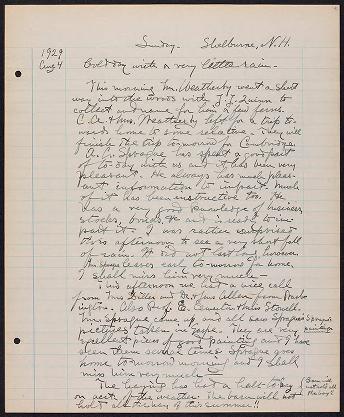 Sunday. Shelburne, N.H.
1929
Aug 4
Cold day with a very little rain.
This morning Mr. Weatherby went a short
way into the woods with J. J. Quinn to
collect and name for him a few ferns.
C. A. & Mrs. Weatherby left for a trip to-
wards home to some relative. They will
finish the trip tomorrow for Cambridge.
A. J. Sprague has spent a good part
of to-day with us and it has been very
pleasant. He always has much pleas-
ant information to impart. Much
of it has been instructive too. He
has a very good knowledge of business
stocks, bonds, and is ready to im-
part it. I was rather surprised
this afternoon to see a very short fall
of rain. It did not last long, however.
Mr. Sprague leaves early to-morrow for home.
I shall miss him very much.
This afternoon we had a nice call
from Mrs. and Dr. & Mrs. Allen from Wash-
ington. Also Prof. E. & Miss Stowell.
Mrs Sprague came up and all saw Sprague's
pictures taken in . They are very
excellent pieces of good painting and I have
seen them several times. Sprague goes
home to-morrow morning and I shall
miss him very much.
Sprague's
paintings
The haying has had a halt to-day
on acct of the weather. The barn will not
hold all the hay of this summer!!
Barn will
not hold all
the hay!